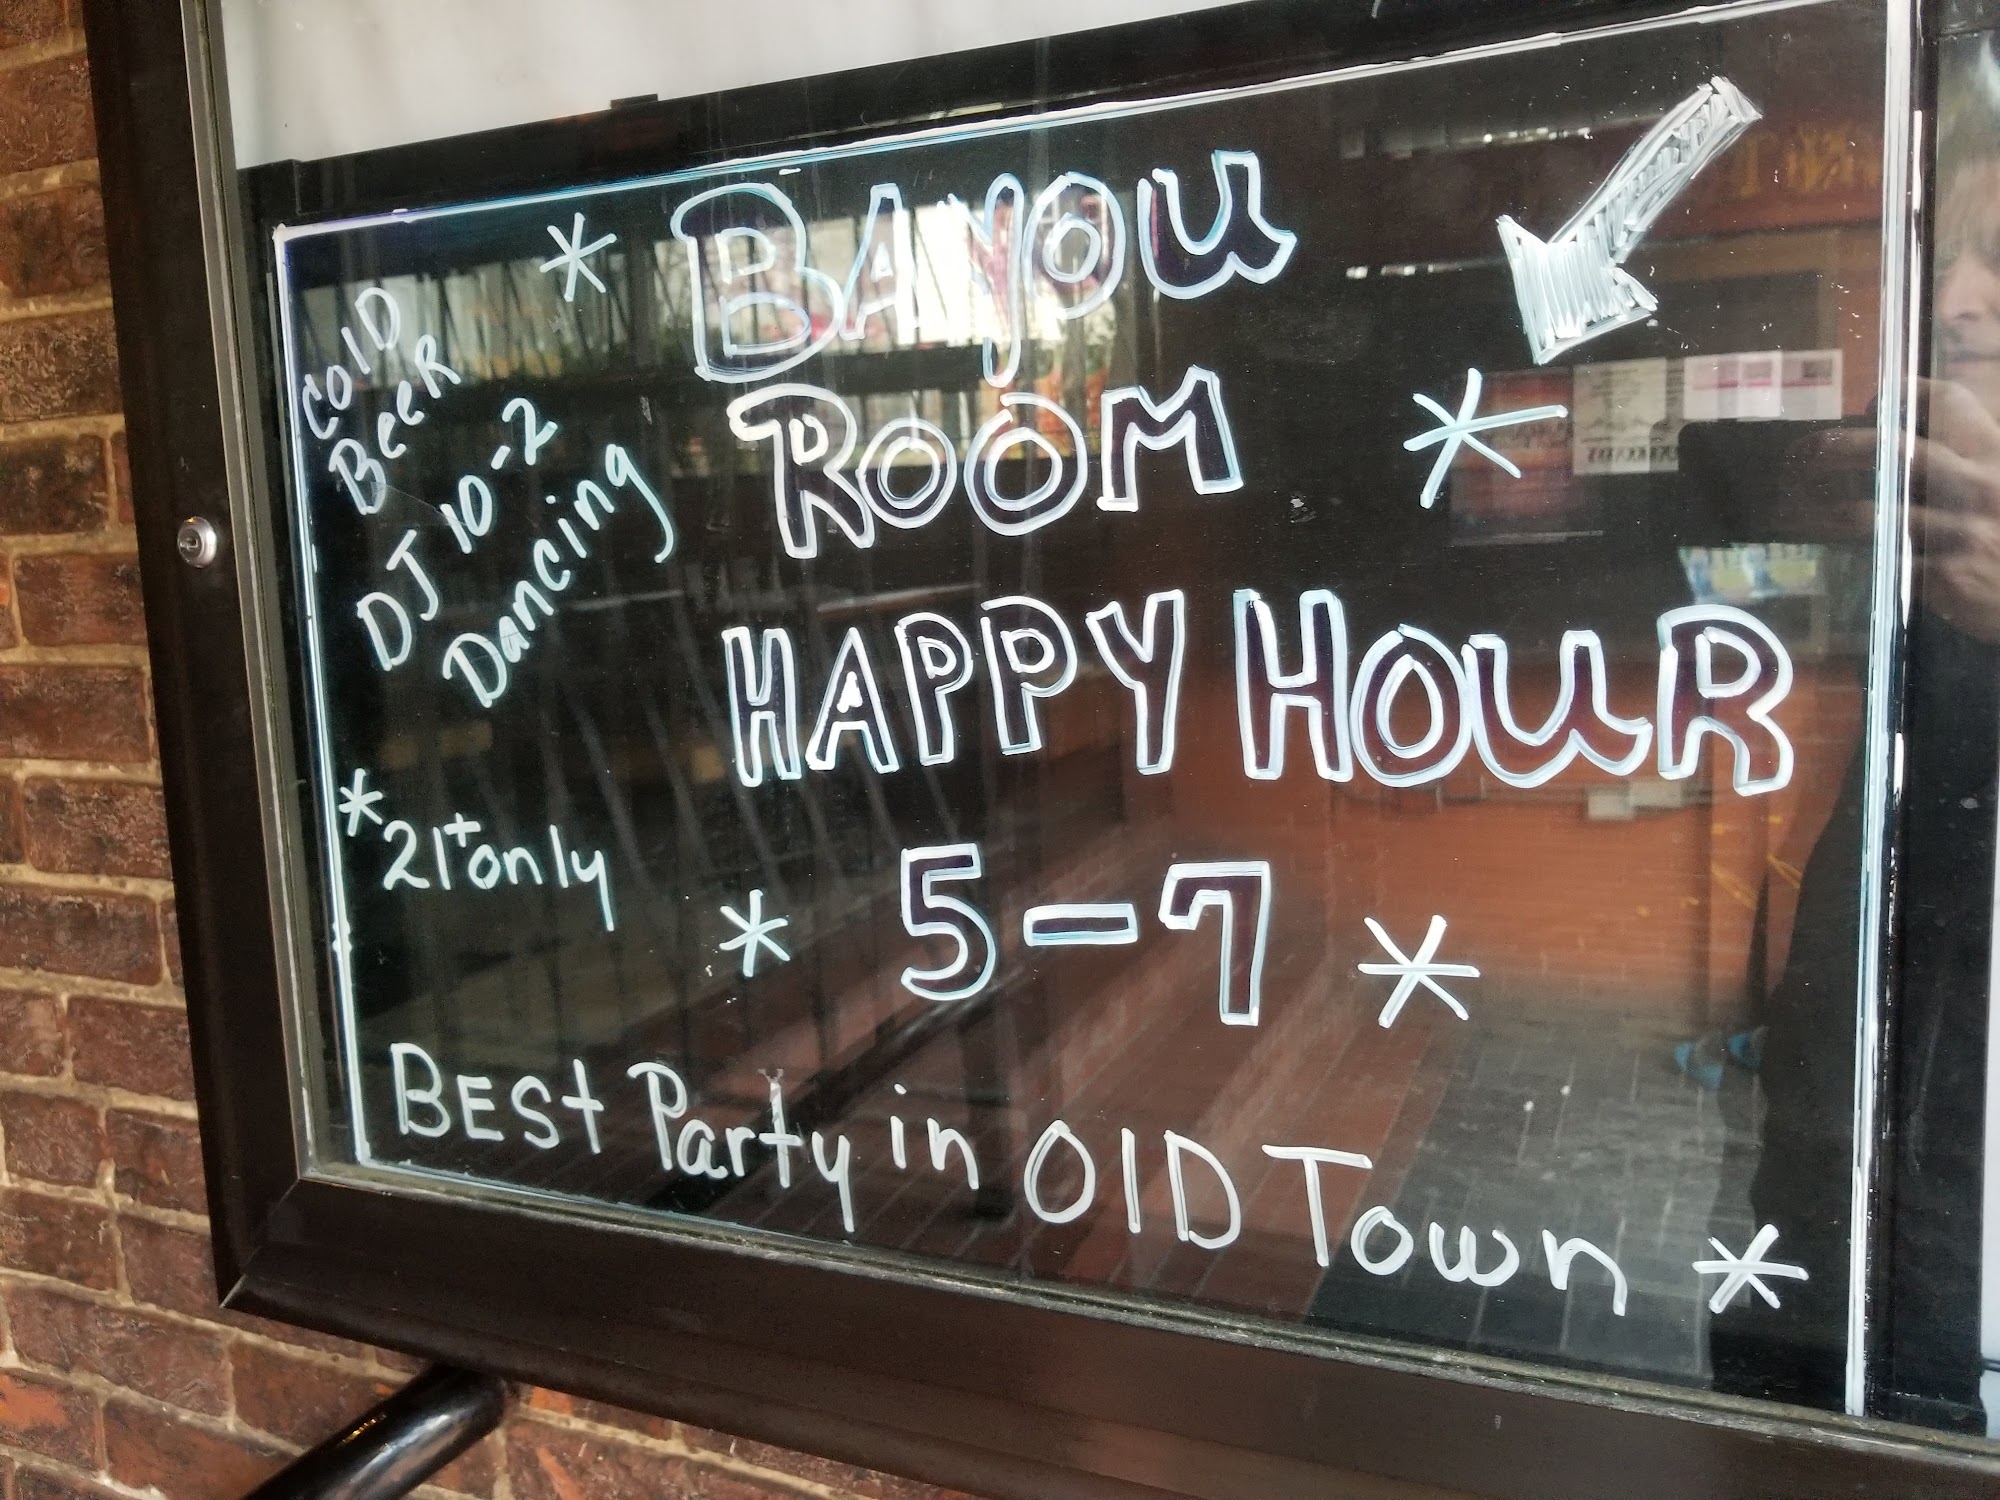 * BAYOU
ROOM *
HAPPY HOUR
* 5-7 *
COlD
BeeR
DJ 10-2
Dancing
* 21+ only
BESt Party in OlD Town *